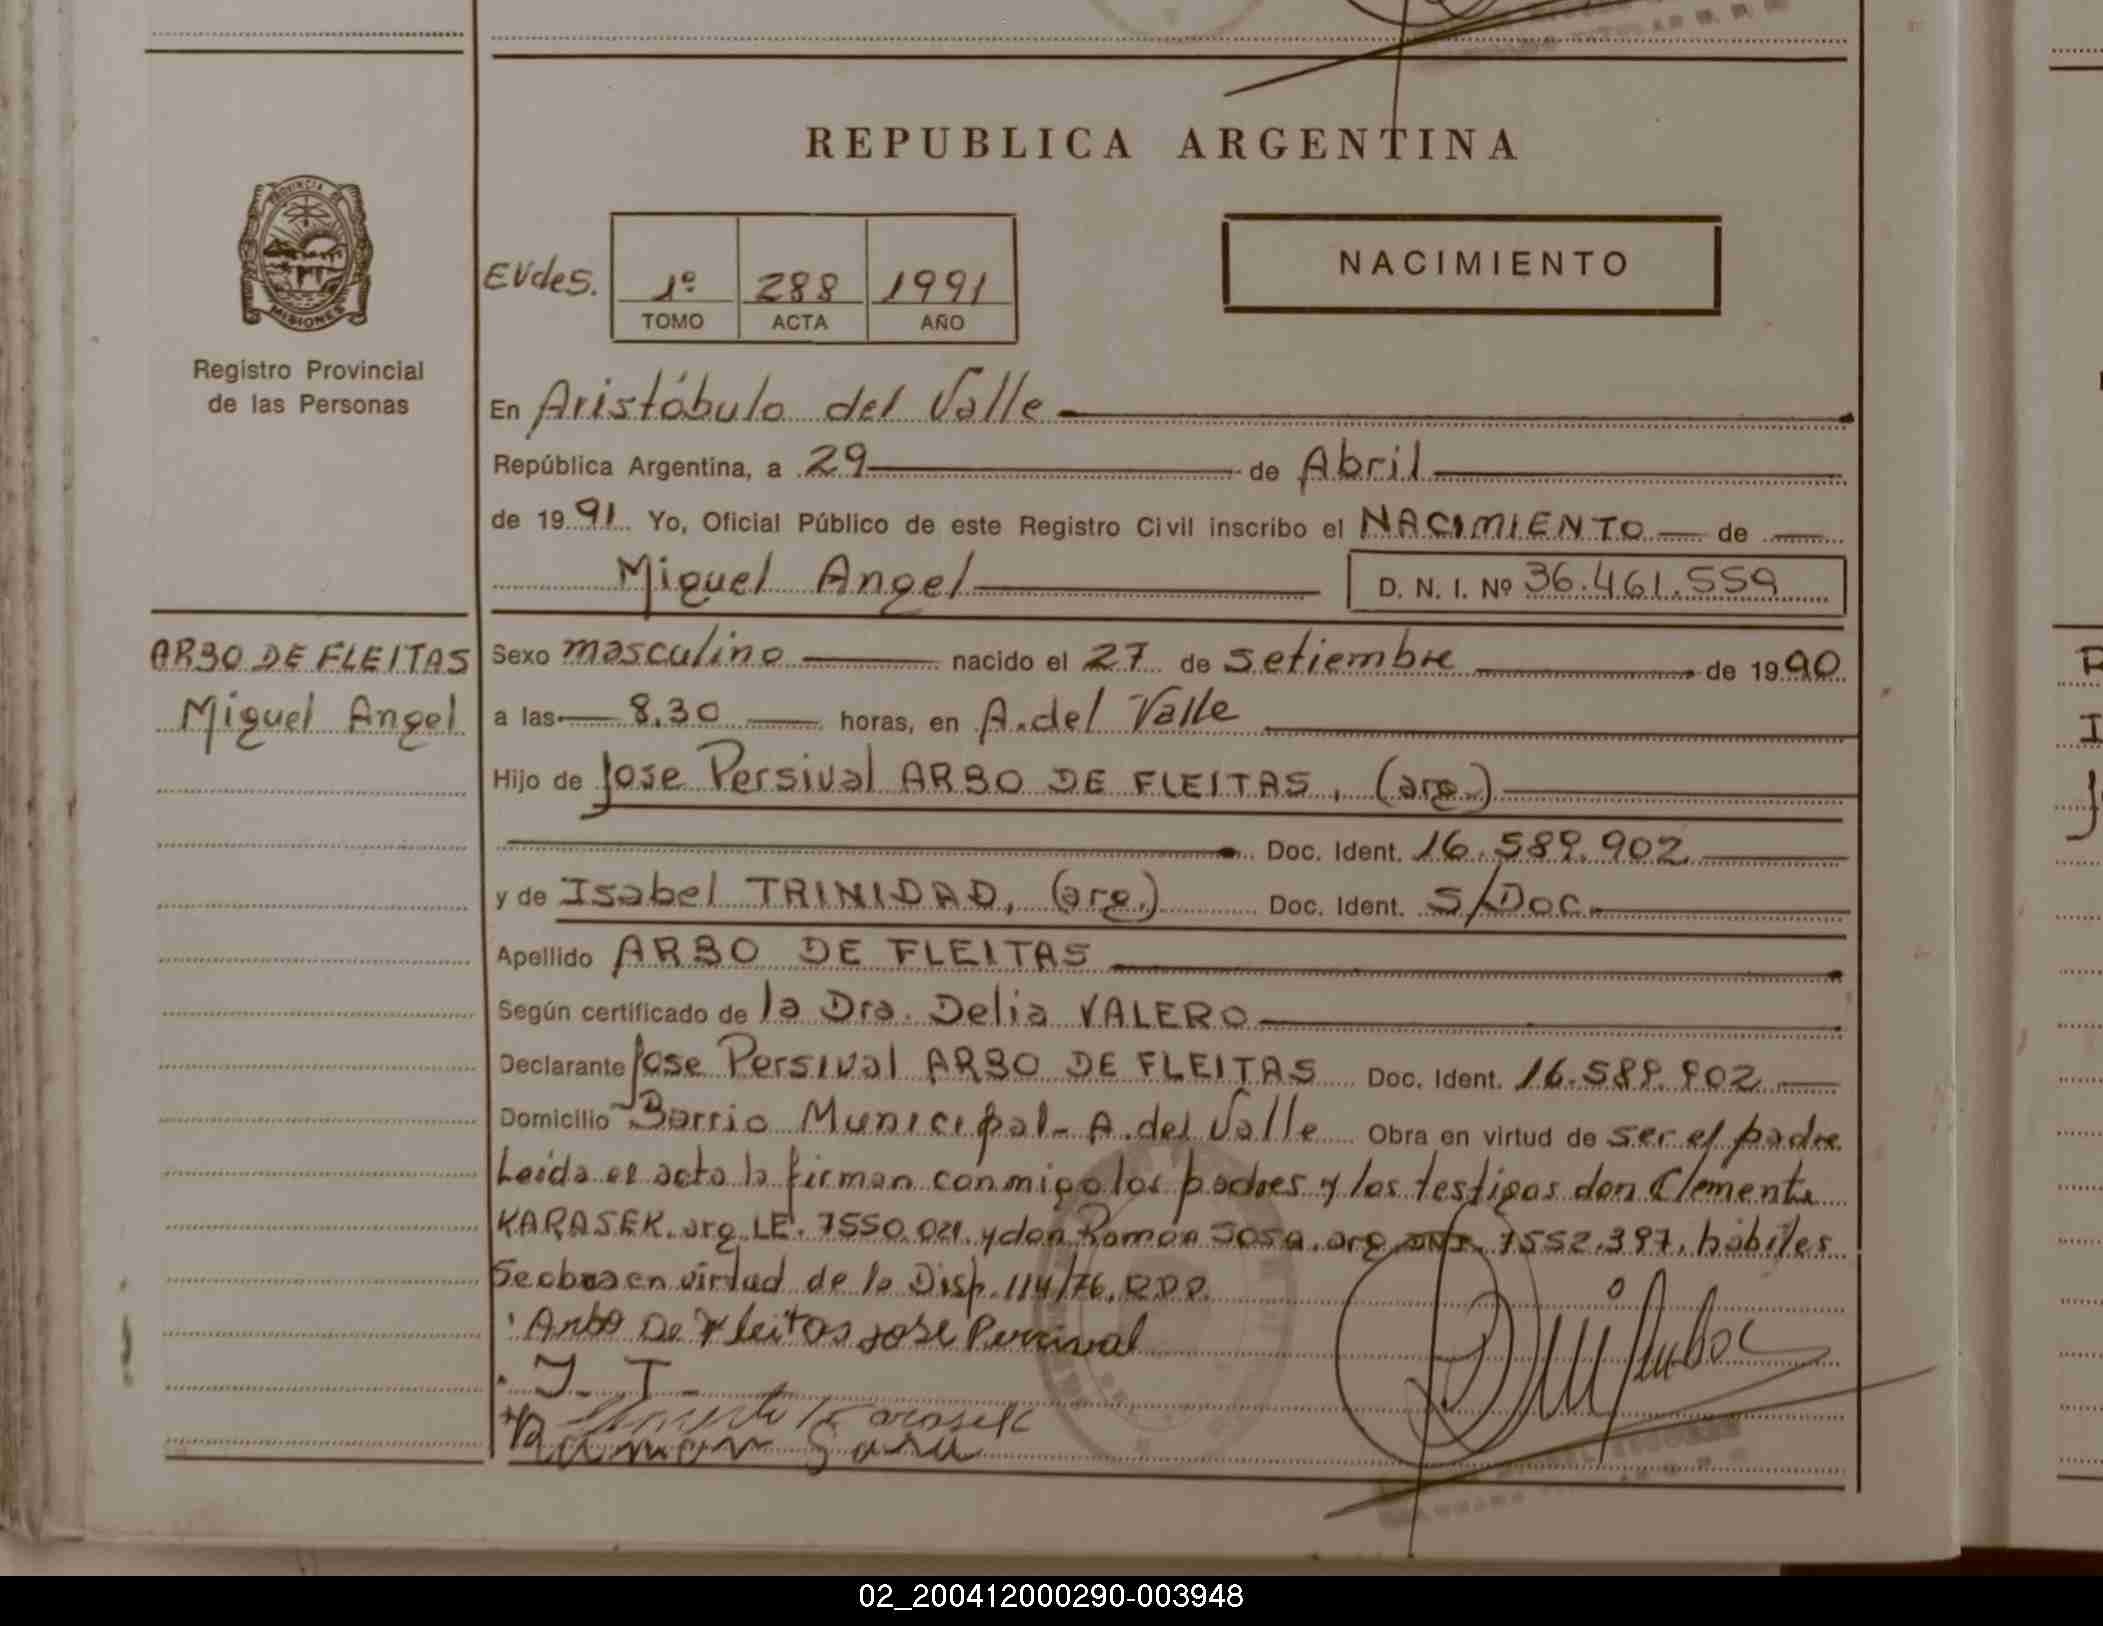 REPUBLICA ARGENTINA
PROVINCIA DE
MISIONES
Registro Provincial
de las Personas
EVdes.
1º 288 1991
TOMO ACTA AÑO
NACIMIENTO
En Aristóbulo del Valle
República Argentina, a 29 de Abril
de 1991 Yo, Oficial Público de este Registro Civil inscribo el NACIMIENTO de
Miguel Angel
D. N. I. Nº 36.461.559
ARBO DE FLEITAS
Miguel Angel
Sexo masculino nacido el 27 de setiembre de 1990
a las 8.30 horas, en A. del Valle
Hijo de Jose Persival ARBO DE FLEITAS, (arg.)
Doc. Ident. 16.589.902
y de Isabel TRINIDAD, (arg.) Doc. Ident. S/Doc.
Apellido ARBO DE FLEITAS
Según certificado de la Dra. Delia VALERO
Declarante Jose Persival ARBO DE FLEITAS Doc. Ident. 16.589.902
Domicilio Barrio Municipal - A. del Valle Obra en virtud de ser el padre
Leída el acta la firman conmigo los padres y los testigos don Clemente
KARASEK. arg. LE. 7550.021. y don Ramón Sosa. arg. 7552.397. hábiles
Se obra en virtud de la Disp. 114/76.
Arbo De Fleitas Jose Percival
I. T.
Clemente Karasek
Ramon Sosa
02_200412000290-003948